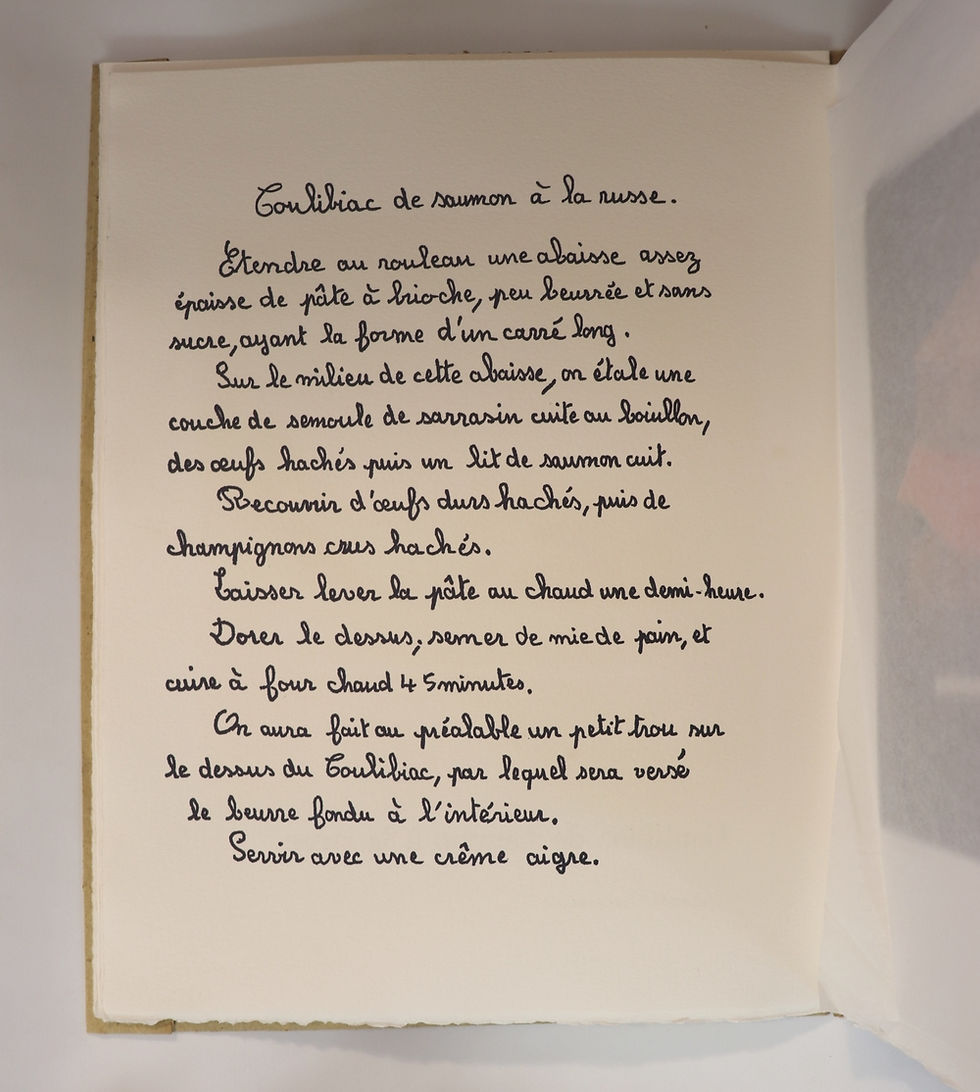 Coulibiac de saumon à la russe.
Etendre au rouleau une abaisse assez
épaisse de pâte à brioche, peu beurrée et sans
sucre, ayant la forme d'un carré long.
Sur le milieu de cette abaisse, on étale une
couche de semoule de sarrasin cuite au bouillon,
des œufs hachés puis un lit de saumon cuit.
Recouvrir d'œufs durs hachés, puis de
champignons crus hachés.
Laisser lever la pâte au chaud une demi-heure.
Dorer le dessus; semer de mie de pain, et
cuire à four chaud 45 minutes.
On aura fait au préalable un petit trou sur
le dessus du Coulibiac, par lequel sera versé
le beurre fondu à l'intérieur.
Servir avec une crême aigre.